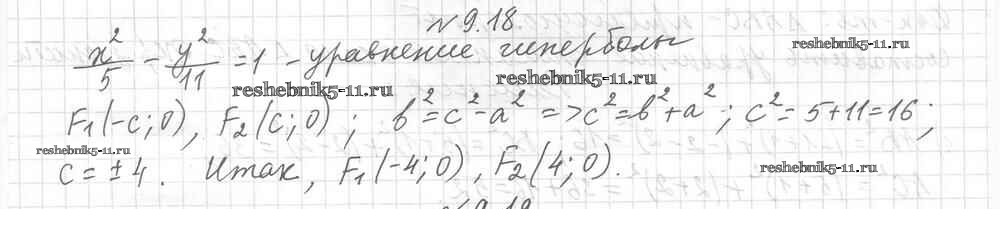 № 9.18.
x²/5 - y²/11 = 1 - уравнение гиперболы
reshebnik5-11.ru
reshebnik5-11.ru
reshebnik5-11.ru
F₁(-c; 0), F₂(c; 0); b² = c² - a² => c² = b² + a²; c² = 5 + 11 = 16;
reshebnik5-11.ru
c = ± 4. Итак, F₁(-4; 0), F₂(4; 0).
reshebnik5-11.ru